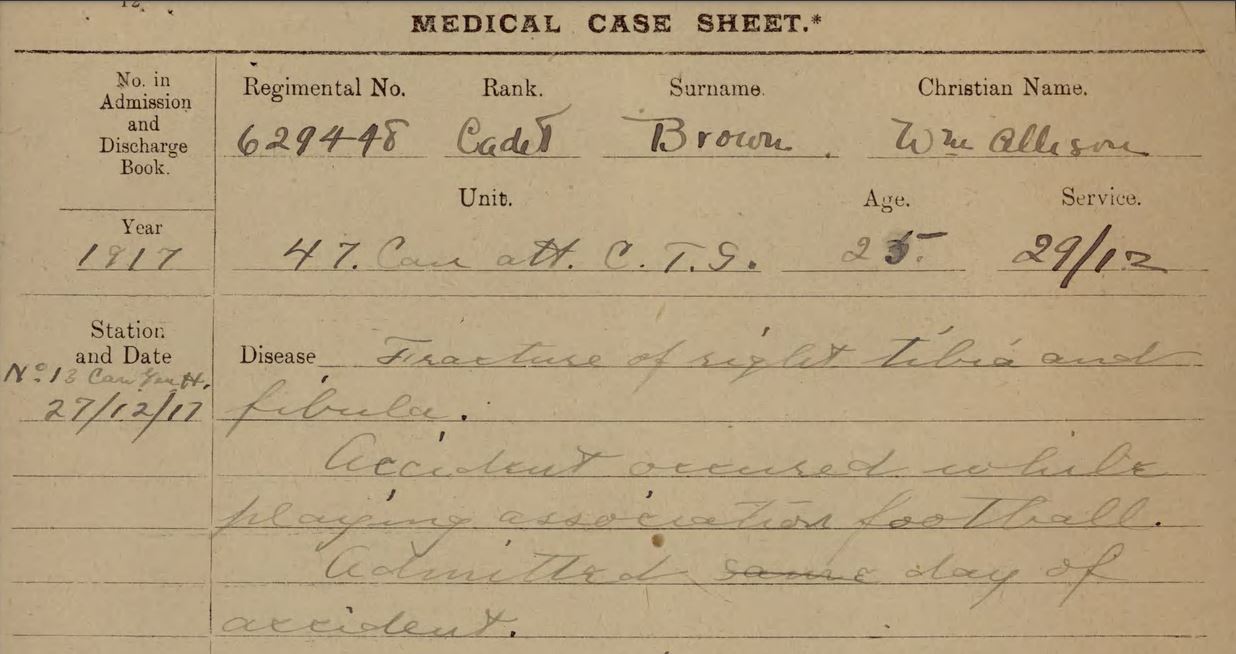 MEDICAL CASE SHEET.*
No. in Admission and Discharge Book.
Regimental No. Rank. Surname. Christian Name.
629448 Cadet Brown Wm Allison
Unit. Age. Service.
Year
1917 47. Can att. C. T. S. 25 29/12
Station and Date
Disease Fracture of right tibia and
No. 13 Can Gen H.
27/12/17 fibula.
Accident occured while
playing association football.
Admitted same day of
accident.